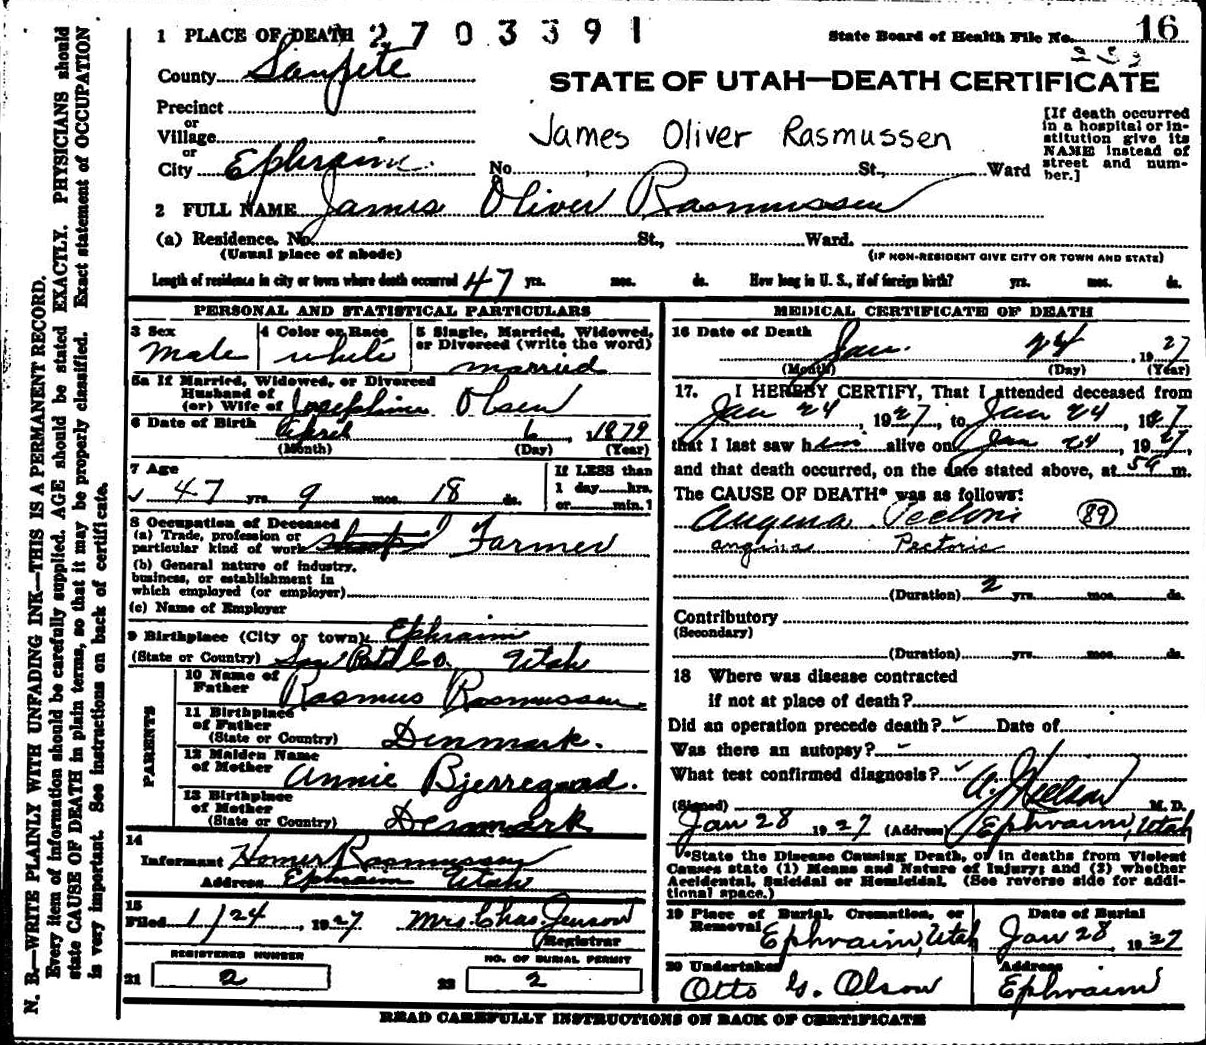 1 PLACE OF DEATH 2703391
State Board of Health File No. 16
County Sanpete
STATE OF UTAH—DEATH CERTIFICATE
Precinct
or
Village
or
City Ephraim
James Oliver Rasmussen
No. St., Ward
[If death occurred
in a hospital or in-
stitution give its
NAME instead of
street and num-
ber.]
2 FULL NAME James Oliver Rasmussen
(a) Residence. No. St., Ward.
(Usual place of abode)
(IF NON-RESIDENT GIVE CITY OR TOWN AND STATE)
Length of residence in city or town where death occurred 47 yrs. mos. ds. How long in U. S., if of foreign birth? yrs. mos. ds.
PERSONAL AND STATISTICAL PARTICULARS
3 Sex
Male
4 Color or Race
white
5 Single, Married, Widowed,
or Divorced (write the word)
married
5a If Married, Widowed, or Divorced
Husband of
(or) Wife of Josephine Olsen
6 Date of Birth April 6, 1879
(Month) (Day) (Year)
7 Age
47 yrs. 9 mos. 18 ds.
If LESS than
1 day hrs.
or min.?
8 Occupation of Deceased
(a) Trade, profession or
particular kind of work Farmer
(b) General nature of industry,
business, or establishment in
which employed (or employer)
(c) Name of Employer
9 Birthplace (City or town) Ephraim
(State or Country) San Pete Co. Utah
PARENTS
10 Name of
Father Rasmus Rasmussen
11 Birthplace
of Father
(State or Country) Denmark.
12 Maiden Name
of Mother Annie Bjerregaard.
13 Birthplace
of Mother
(State or Country) Denmark
14
Informant Homer Rasmussen
Address Ephraim Utah
15
Filed 1/24, 1927 Mrs. Chas. Jenson
Registrar
REGISTERED NUMBER
21 2
NO. OF BURIAL PERMIT
22 2
MEDICAL CERTIFICATE OF DEATH
16 Date of Death Jan. 24, 1927
(Month) (Day) (Year)
17. I HEREBY CERTIFY, That I attended deceased from
Jan 24, 1927, to Jan 24, 1927
that I last saw him alive on Jan 24, 1927,
and that death occurred, on the date stated above, at m.
The CAUSE OF DEATH* was as follows:
Angina Pectoris 89
angina Pectoris
(Duration) 2 yrs. mos. ds.
Contributory
(Secondary)
(Duration) yrs. mos. ds.
18 Where was disease contracted
if not at place of death?
Did an operation precede death? Date of
Was there an autopsy?
What test confirmed diagnosis?
(Signed) A. J. Nielson M. D.
Jan 28 1927 (Address) Ephraim, Utah
*State the Disease Causing Death, or in deaths from Violent
Causes state (1) Means and Nature of Injury; and (2) whether
Accidental, Suicidal or Homicidal. (See reverse side for addi-
tional space.)
19 Place of Burial, Cremation, or
Removal
Ephraim, Utah
Date of Burial
Jan 28 1927
20 Undertaker
Otto G. Olson
Address
Ephraim
READ CAREFULLY INSTRUCTIONS ON BACK OF CERTIFICATE
N. B.—WRITE PLAINLY WITH UNFADING INK—THIS IS A PERMANENT RECORD.
Every item of information should be carefully supplied. AGE should be stated EXACTLY. PHYSICIANS should
state CAUSE OF DEATH in plain terms, so that it may be properly classified. Exact statement of OCCUPATION
is very important. See instructions on back of certificate.